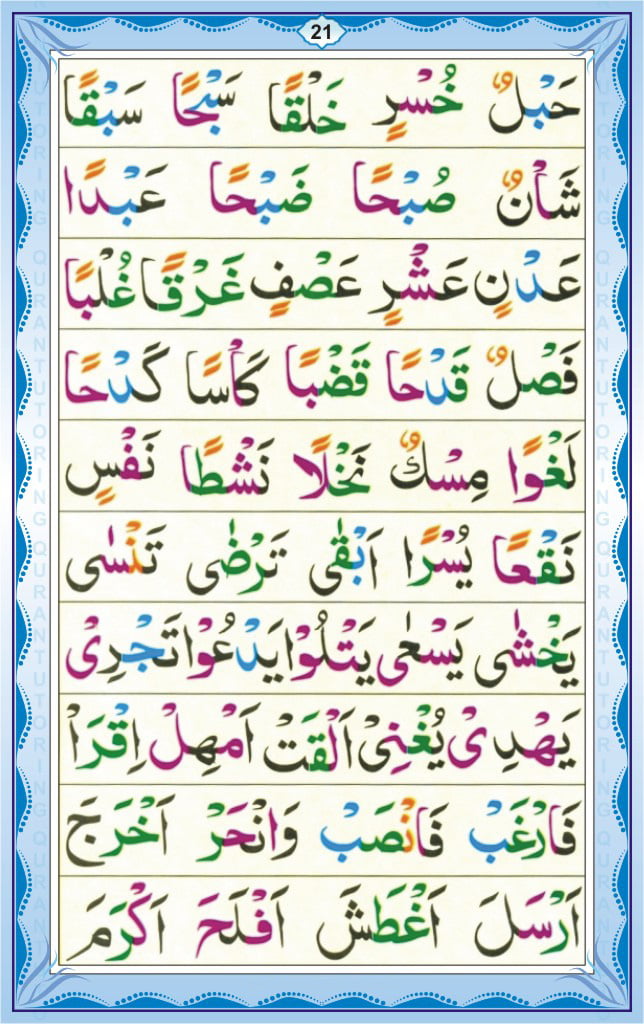 21
حَبْلٌ خُسْرٍ خَلْقًا سَبْحًا سَبْقًا
شَأْنٌ صُبْحًا ضَبْحًا عَبْدًا
عَدْنٍ عَشْرٍ عَصْفٍ غَرْقًا غُلْبًا
فَصْلٌ قَدْحًا قَضْبًا كَأْسًا كَدْحًا
لَغْوًا مِسْكٌ نَخْلًا نَشْطًا نَفْسٍ
نَقْعًا يُسْرًا اَبْقٰى تَرْضٰى تَنْسٰى
يَخْشٰى يَسْعٰى يَتْلُوْا يَدْعُوْا تَجْرِىْ
يَهْدِىْ يُغْنِىْ اَلْقَتْ اَمْهِلْ اِقْرَاْ
فَارْغَبْ فَانْصَبْ وَانْحَرْ اَخْرَجَ
اَرْسَلَ اَغْطَشَ اَفْلَحَ اَكْرَمَ
QURAN TUTORING QURAN TUTORING
QURAN TUTORING QURAN TUTORING